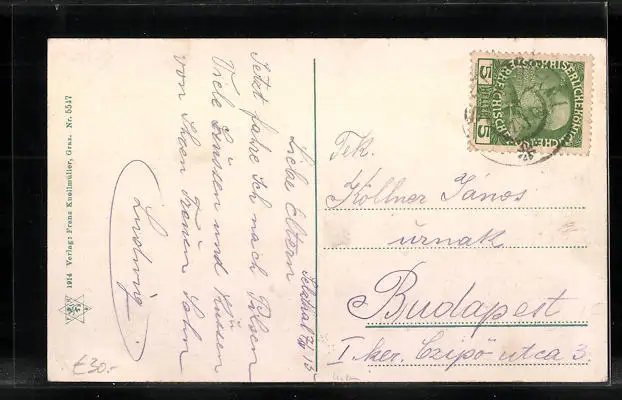 Liebe Eltern
Jetzt fahre Ich nach Polsen
Viele Grüssen und Küssen
von Ihren Treuen Sohn
Ludwig
Tek.
Köllner János
úrnak
Budapest
I ker. Czipő utca 3.
1914 Verlag: Franz Knollmüller, Graz. Nr. 5517
€30.-
5
5